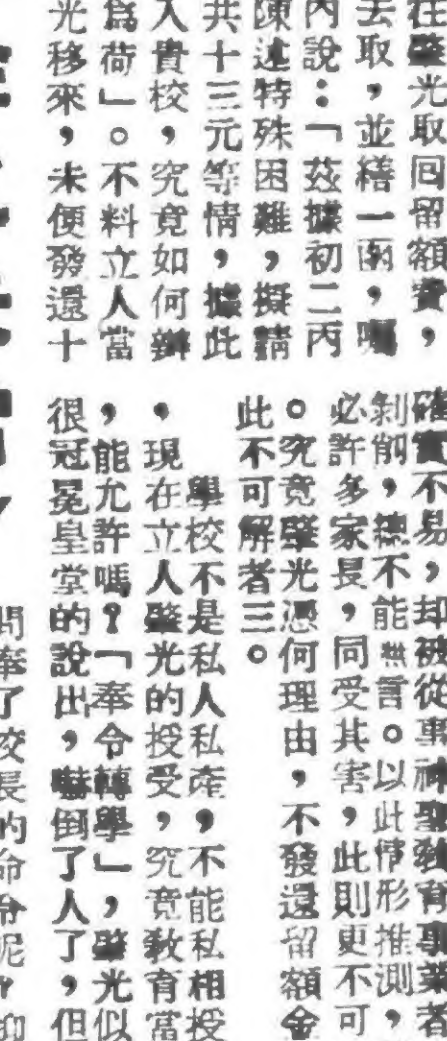 在肇光取回留額費，
去取，並繕一函，囑
內說：「茲據初二丙
陳述特殊困難，擬請
共十三元等情，據此
入貴校，究竟如何辦
為荷」。不料立人當
光移來，未便發還十
確實不易，却被從事神聖教育事業者
剝削，總不能無言。以此情形推測，
必許多家長，同受其害，此則更不可
。究竟肇光憑何理由，不發還留額金
此不可解者三。
學校不是私人私產，不能私相授
，現在立人肇光的授受，究竟教育當
，能允許嗎？「奉令轉學」，肇光似
很冠冕皇堂的說出，嚇倒了人了，但
問奉了校長的命令呢？抑